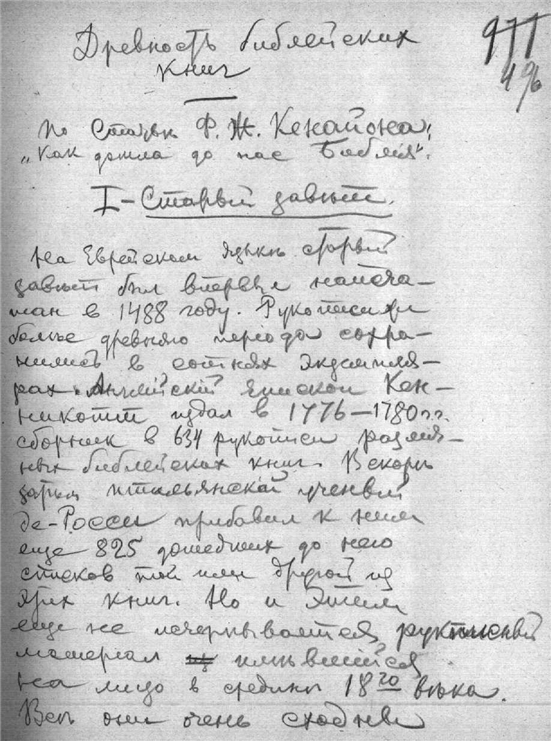 977
496
Древность библейских
книг
По Статьѣ Ф. Ж. Кенайона:
„Как дошла до нас Библия".
I – Старый завѣт.
На Еврейском языкѣ старый
завѣт был впервые напеча-
тан в 1488 году. Рукописи
болѣе древняго периода сохра-
нились в сотнях экземпля-
рах. Английский епископ Кен-
никотт издал в 1776–1780 гг.
сборник в 634 рукописи различ-
ных библейских книг. Вскорѣ
затѣм итальянский ученый
де-Росси прибавил к ним
еще 825 дошедших до него
списков той или другой из
этих книг. Но и этим
еще не исчерпывается рукописный
материал имѣвшийся
на лицо в срединѣ 18го вѣка.
Всѣ они очень сходны